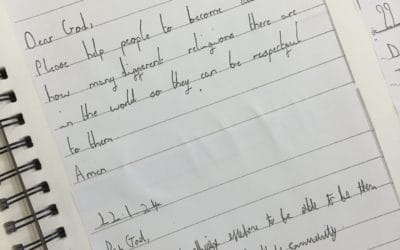 Dear God,
Please help people to become
how many different religions there are
in the world so they can be respectful
to them.
Amen
22.1.24
Dear God,
to be able to be
community
99
D